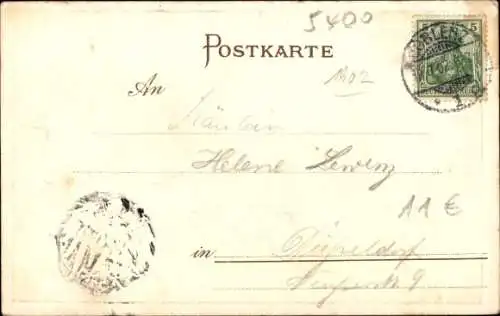 5400
5
COBLENZ
POSTKARTE
1902
An
Fräulein
Helene Lewenz
11 €
in Düsseldorf
9